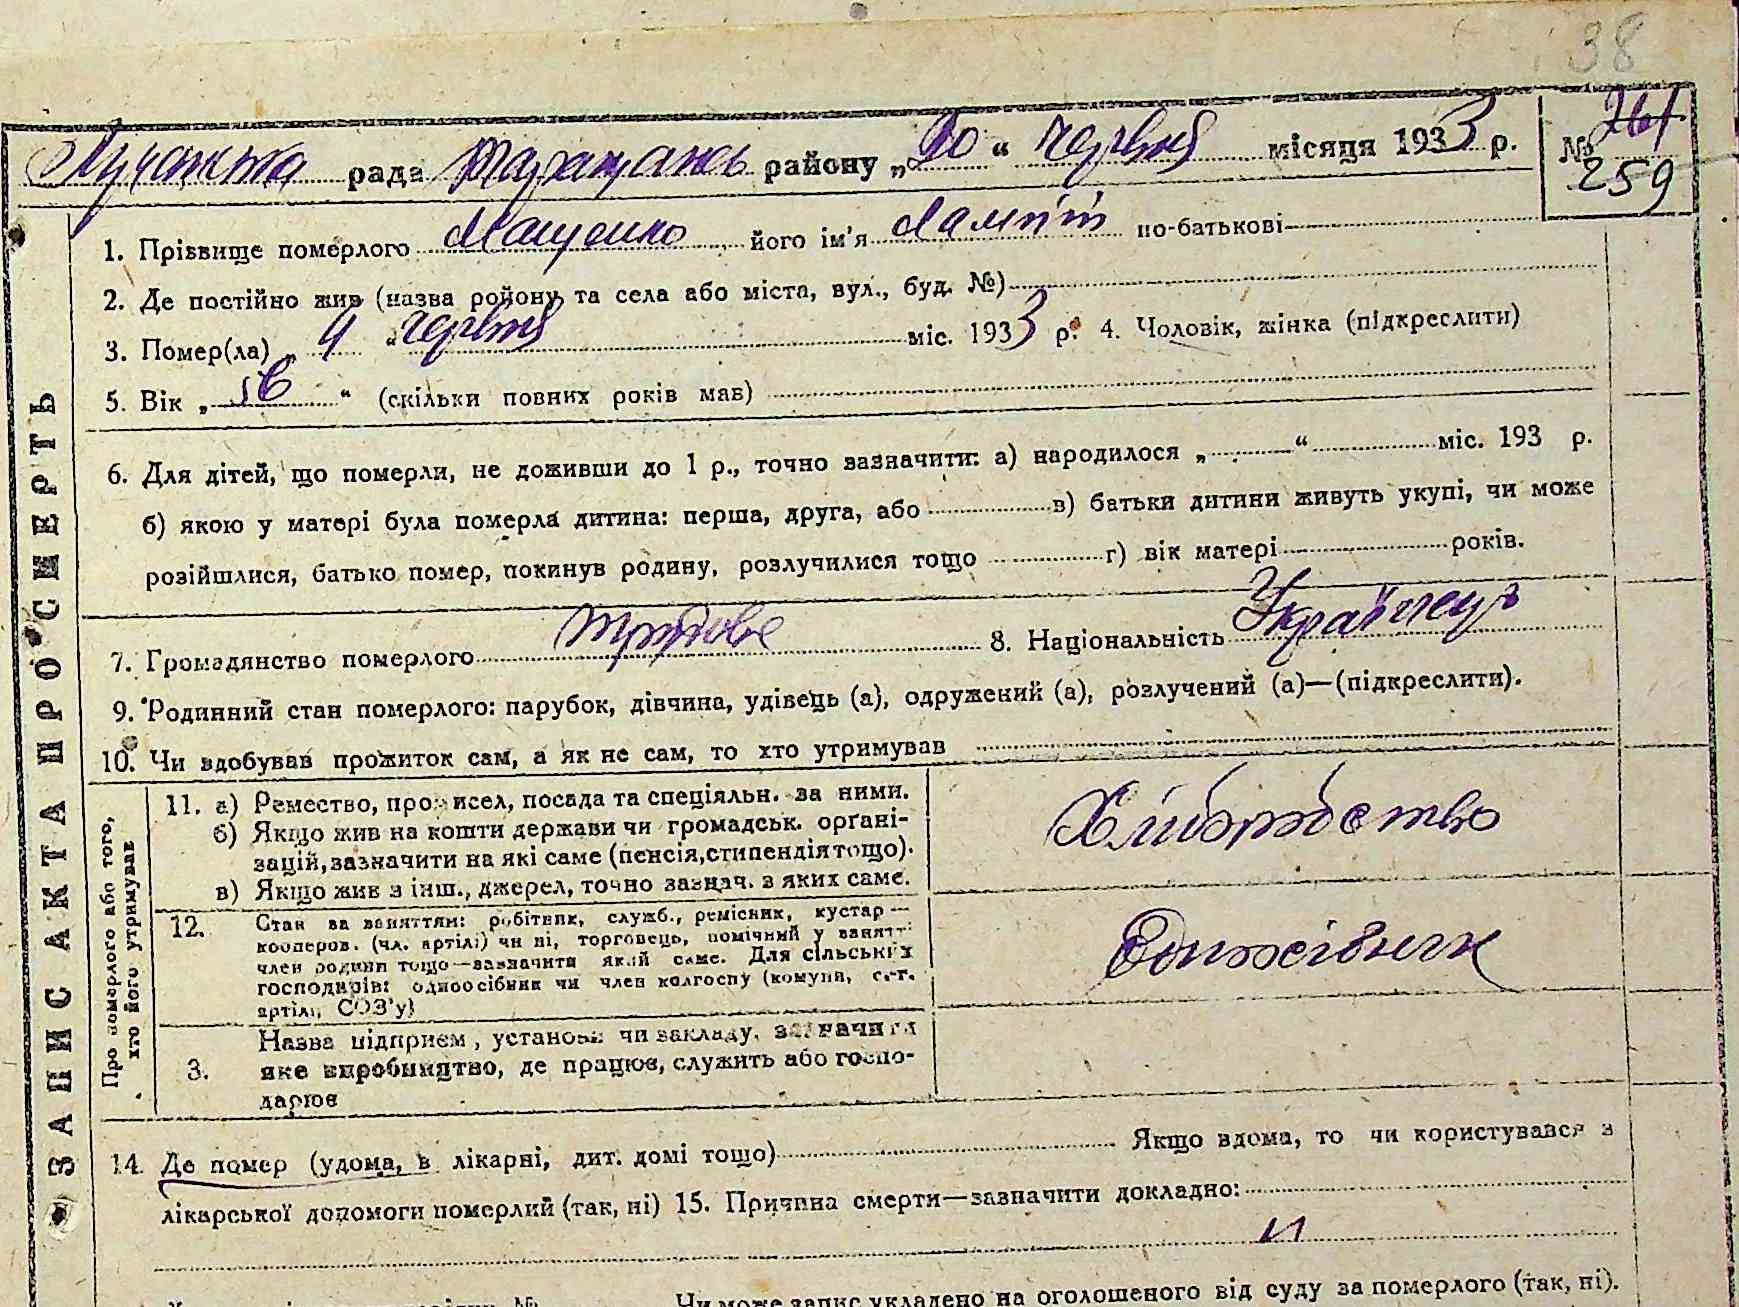 38
Лучанська рада Таращансь району „10“ червня місяця 1933 р. № 261
259
1. Прізвище померлого Мащенко його ім'я по-батькові
2. Де постійно жив (назва ройону та села або міста, вул., буд. №)
3. Помер(ла) „4“ червня міс. 1933 р. 4. Чоловік, жінка (підкреслити)
5. Вік „56“ (скільки повних років мав)
6. Для дітей, що померли, не доживши до 1 р., точно зазначити: а) народилося „ “ міс. 193 р.
б) якою у матері була померла дитина: перша, друга, або в) батьки дитини живуть укупі, чи може
розійшлися, батько помер, покинув родину, розлучилися тощо г) вік матері років.
7. Громадянство померлого 8. Національність Українець
9. Родинний стан померлого: парубок, дівчина, удівець (а), одружений (а), розлучений (а)—(підкреслити).
10. Чи здобував прожиток сам, а як не сам, то хто утримував
ЗАПИС АКТА ПРО СМЕРТЬ
Про померлого або того,
хто його утримував
11. а) Ремество, промисел, посада та спеціяльн. за ними.
б) Якщо жив на кошти держави чи громадськ. органі-
зацій, зазначити на які саме (пенсія, стипендія тощо).
в) Якщо жив з інш., джерел, точно зазнач. з яких саме.
Хліборобство
12. Стан за заняттям: робітник, служб., ремісник, кустар—
кооперов. (чл. артілі) чи ні, торговець, помічний у занятті
член родини тощо—зазначити який саме. Для сільських
господарів: одноосібник чи член колгоспу (комуни, с.-г.
артілі, СОЗ'у)
3. Назва підприєм, установи чи закладу, зазначити
яке виробництво, де працює, служить або госпо-
дарює
14. Де помер (удома, в лікарні, дит. домі тощо) Якщо вдома, то чи користувався з
лікарської допомоги померлий (так, ні) 15. Причина смерти—зазначити докладно:
Чи може запис укладено на оголошеного від суду за померлого (так, ні).